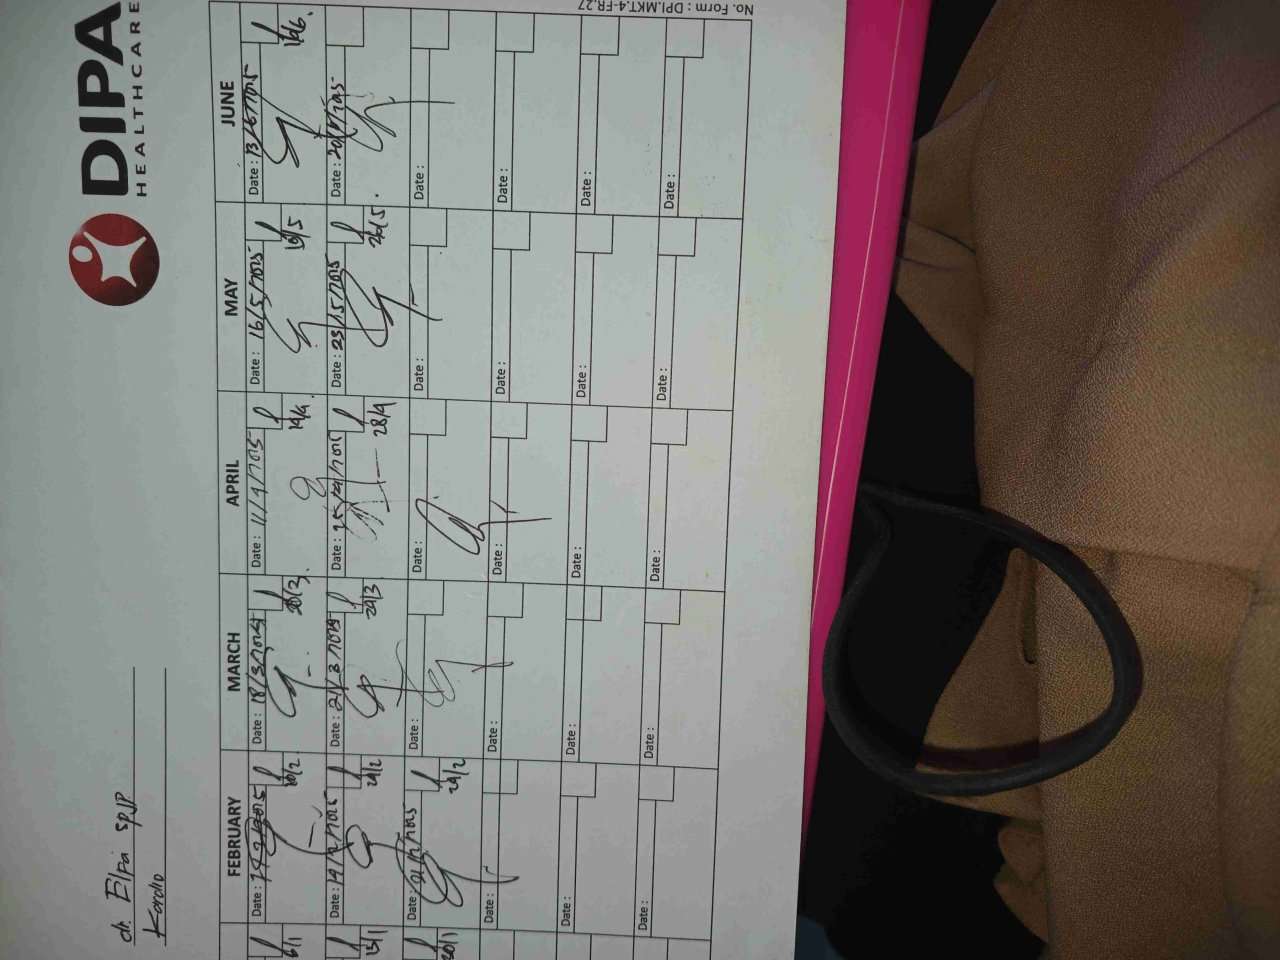 DIPA
HEALTHCARE
dr. Elpa SpJP
Kardio
FEBRUARY MARCH APRIL MAY JUNE
Date : Date : 18/3/2025 Date : 11/4/2025 Date : 16/5/2025 Date : 13/6/2025
10/2 20/3 14/4 19/5 16/6
6/1
Date : 14/2/2025 Date : 21/3/2025 Date : 25/4/2025 Date : 23/5/2025 Date :
24/2 24/3 28/4 26/5
13/1
Date : 21/2/2025 Date : Date : Date : Date :
24/2
20/1
Date : Date : Date : Date : Date :
Date : Date : Date : Date : Date :
Date : Date : Date : Date : Date :
No. Form : DPI.MKT.4-FR.27